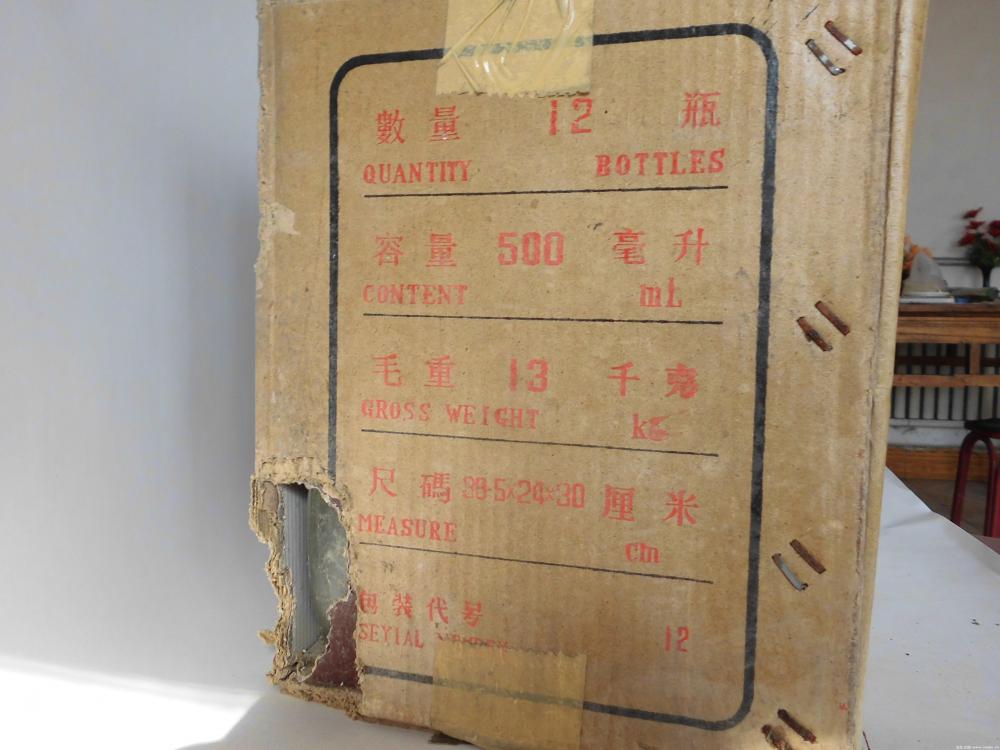 數量 12 瓶
QUANTITY BOTTLES
容量 500 毫升
CONTENT mL
毛重 13 千克
GROSS WEIGHT kg
尺碼 38·5×24×30 厘米
MEASURE cm
包裝代号
SEYIAL 12